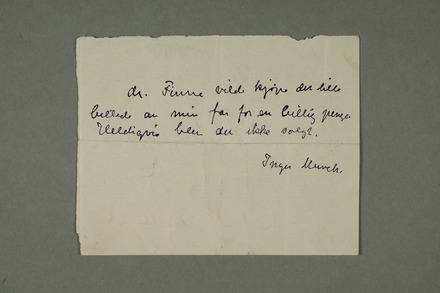 dr. Finne vilde kjøpe det lille
billed av min far for en billig penge
Heldigvis blev det ikke solgt.
Inger Munch.